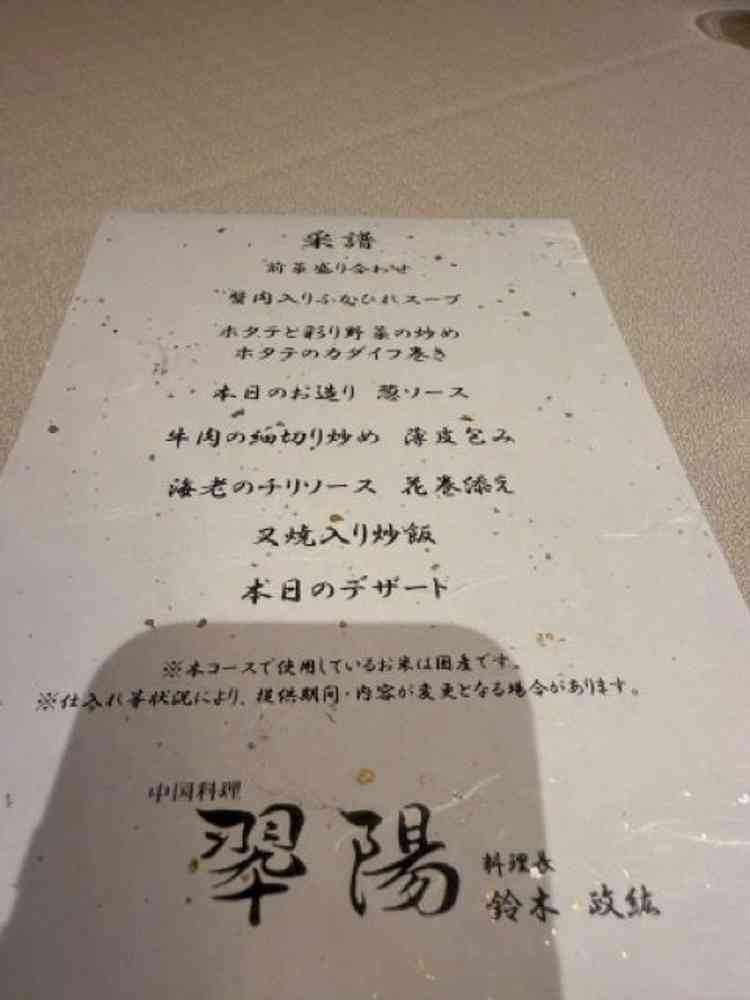 菜譜
前菜盛り合わせ
蟹肉入りふかひれスープ
ホタテと彩り野菜の炒め
ホタテのカダイフ巻き
本日のお造り 葱ソース
牛肉の細切り炒め 薄皮包み
海老のチリソース 花巻添え
叉焼入り炒飯
本日のデザート
※本コースで使用しているお米は国産です。
※仕入れ等状況により、提供期間・内容が変更となる場合があります。
中国料理
翠陽
料理長
鈴木 政紘